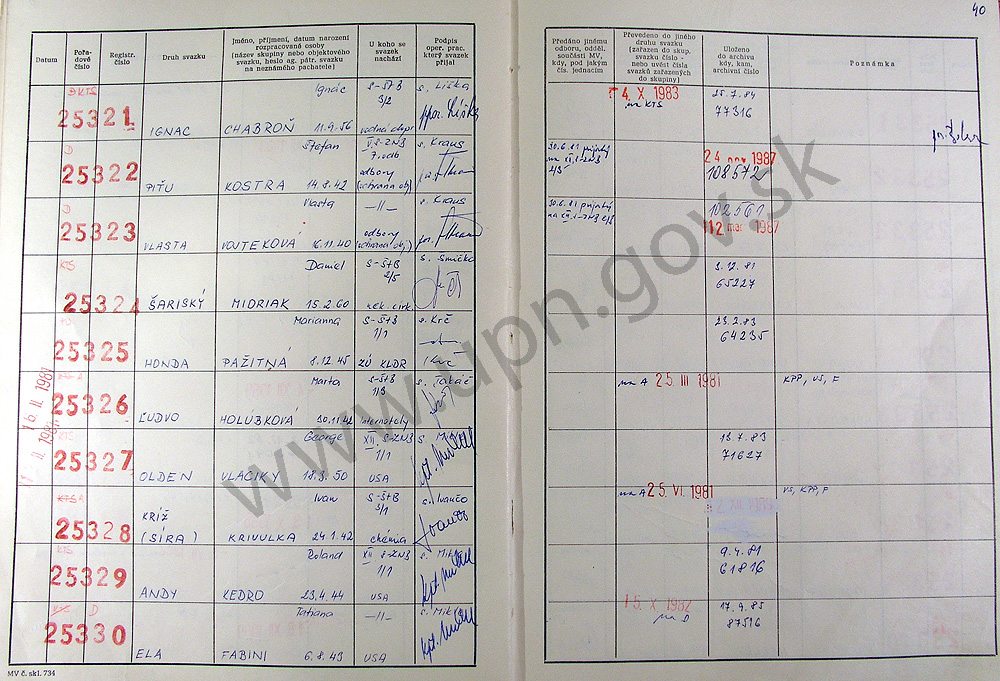 40
Datum
Pořadové číslo
Registr. číslo
Druh svazku
Jméno, příjmení, datum narození rozpracované osoby (název skupiny nebo objektového svazku, heslo ag. pátr. svazku na neznámého pachatele)
U koho se svazek nachází
Podpis oper. prac. který svazek přijal
Předáno jinému odboru, odděl. součásti MV, kdy, pod jakým čís. jednacím
Převedeno do jiného druhu svazku (zařazen do skup. svazku číslo - nebo uvést čísla svazků zařazených do skupiny)
Uloženo do archivu kdy, kam, archivní číslo
Poznámka
D KTS
Ignác S-ŠtB s. Liška 4. X 1983 25.7.84
25321 3/2 na KTS 77316
IGNAC CHABROŇ 11.9.56
D Štefan s. Kraus 30.6.81
25322 7. odb 24 nov 1987
PIŤU KOSTRA 14.8.42 odbory 108572
D Vlasta -11- s. Kraus 30.6.81 102561
25323 odbory 12 mar 1987
VLASTA VOJTEKOVÁ 16.11.40
KTS Daniel S-ŠtB s. Smička 3.12.81
25324 2/5 65227
ŠARISKÝ MIDRIAK 15.2.60
Marianna S-ŠtB s. Krč 23.2.83
25325 1/1 64235
HONDA PAŽITNÁ 8.12.45 ZÚ KLDR
Marta S-ŠtB s. Takáč na A 25. III 1981 KPP, VS, F
25326 1/3
ĽUDVO HOLUBKOVÁ 30.11.42 internáty
16. II. 1981
George XII. S-ZNB 13.7.83
25327 1/1 71627
OLDEN VLACIKY 18.3.50 USA
KTS A Ivan S-ŠtB s. Ivančo na A 25. VI. 1981 VS, KPP, F
25328 KRÍŽ 3/1
(SÍRA) KRIVULKA 24.1.42 chémia
KTS Roland XII S-ZNB 9.4.81
25329 1/1 61816
ANDY KEDRO 23.4.44 USA
D Tatiana -11- 5. X 1982 17.9.85
25330 87516
ELA FABINI 6.8.49 USA
MV č. skl. 734
www.upn.gov.sk